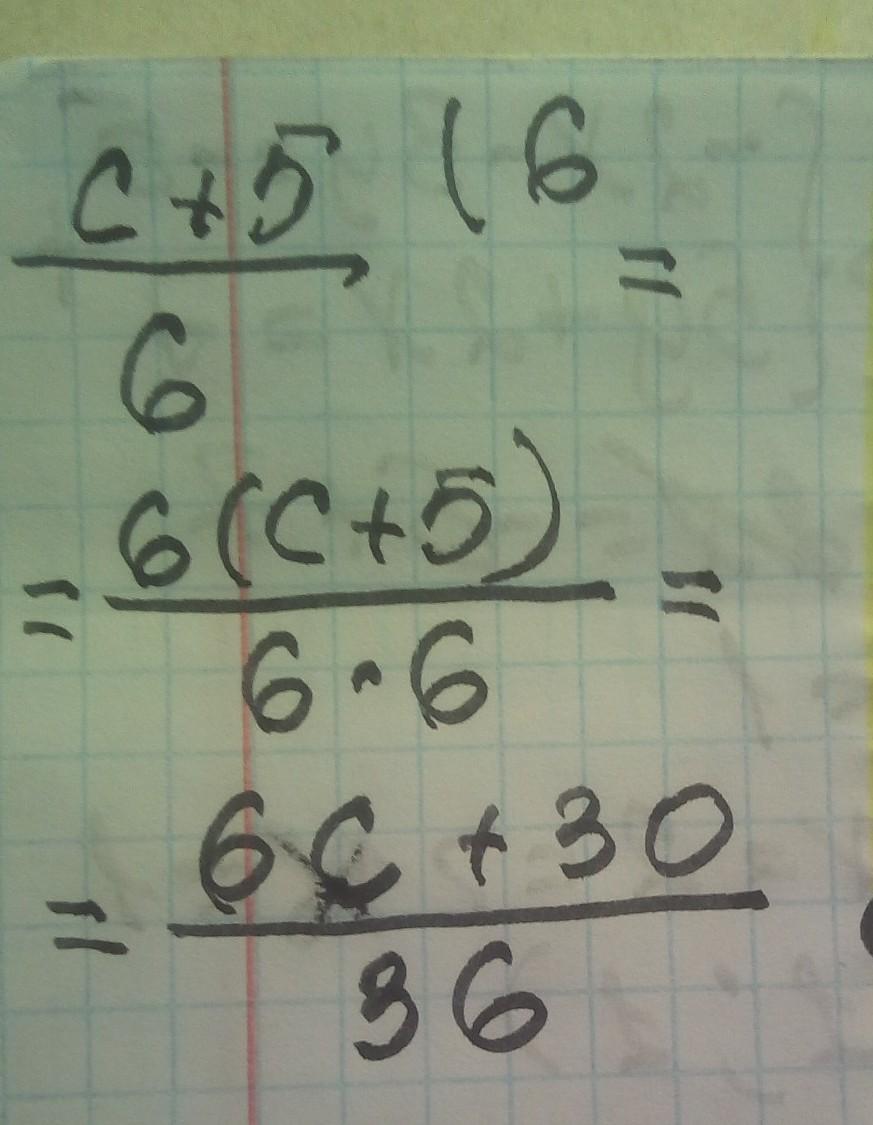 c+5 (6 =
6
= 6(c+5) =
6·6
= 6c + 30
36